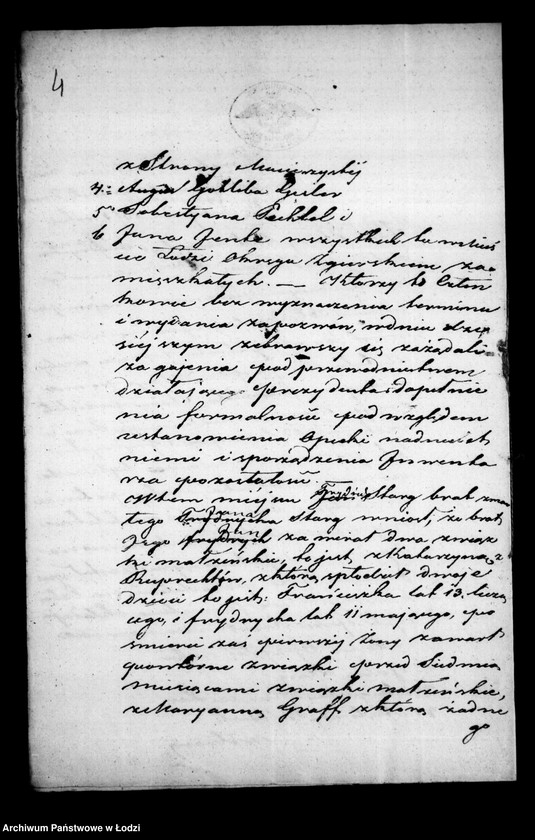 4
z Strony Macierzystéj
4.= August Gottliba Geiler
5° Sebestyana Pechtol i
6 Jana Jente wszystkich tu mieś
cie Łodzi Okręgu Zgierskiem za=
mieszkałych. — Którzy to Człon
kowie bez wyznaczenia terminu
i wydania zapozwów, w dniu dzi
siéjszym zebrawszy się zażądali
zagajenia pod przewodnictwem
działającego prezydenta dopełnie
nia formalności pod względem
ustanowienia Opieki nad nielet
niemi i sporządzenia Inwenta
rza pozostałości.
W tem miejscu Frydrich Starg brat zmar
łego Jana Starg wniósł, że brat
Jego Jan zawarł dwa związ
ki małżeńskie, to jest z Katarzyną z
Ruprechtów, z którą spłodził dwoje
dzieci to jest: Franciszka lat 13 liczą
cego, i frydrycha lat 11 mającego, po
śmierci zaś pierwszej żony zawarł
powtórne związki przed Siedmią
miesiącami związki małżeńskie,
z Maryanną Graff z którą żadne
go
Archiwum Państwowe w Łodzi